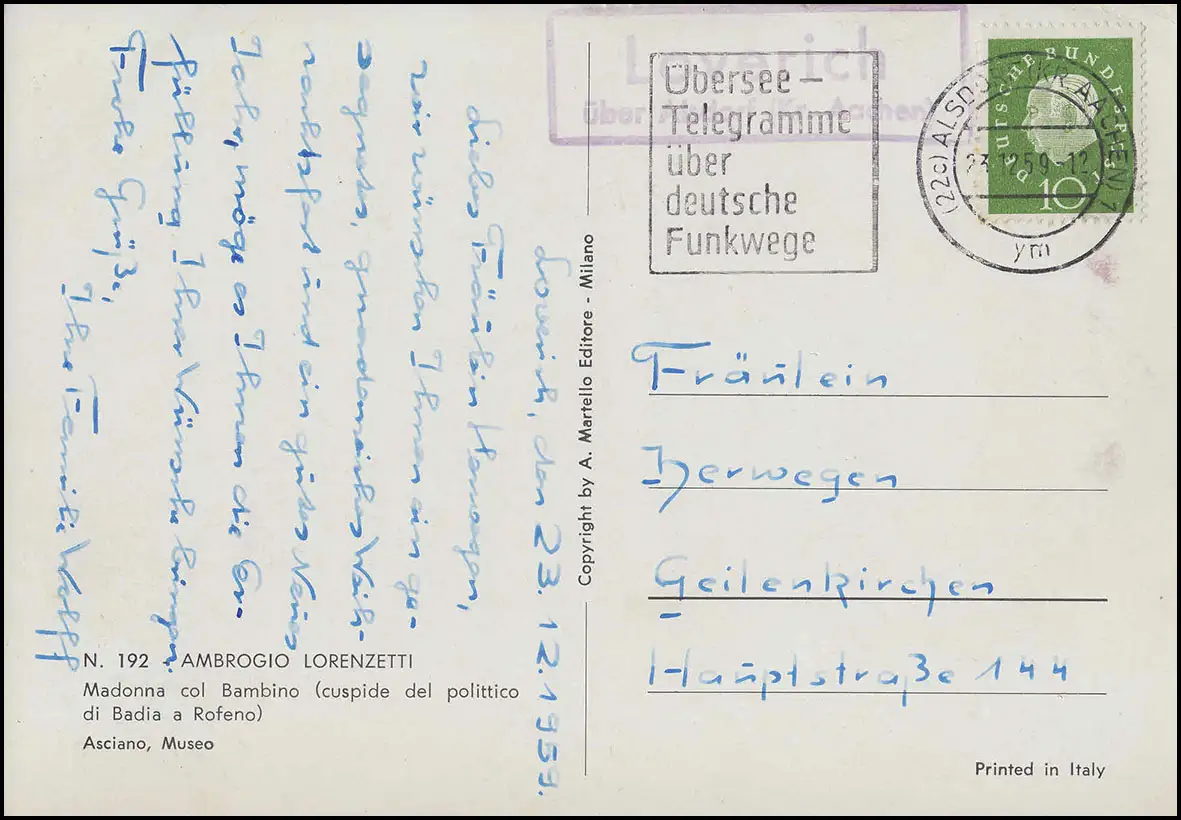 Loverich
über Alsdorf (Kr. Aachen)
Übersee-
Telegramme
über
deutsche
Funkwege
DEUTSCHE BUNDESPOST
10
(22c) ALSDORF (KR. AACHEN) 1
23.12.59.-12
ym
Loverich, den 23.12.1959.
Liebes Fräulein Herwegen,
wir wünschen Ihnen ein ge-
segnetes, gnadenreiches Weih-
nachtsfest und ein gutes Neues
Jahr, möge es Ihnen die Er-
füllung Ihrer Wünsche bringen.
Frohe Grüße,
Ihre Familie Wolff
Fräulein
Herwegen
Geilenkirchen
Hauptstraße 144
Copyright by A. Martello Editore - Milano
N. 192 - AMBROGIO LORENZETTI
Madonna col Bambino (cuspide del polittico
di Badia a Rofeno)
Asciano, Museo
Printed in Italy